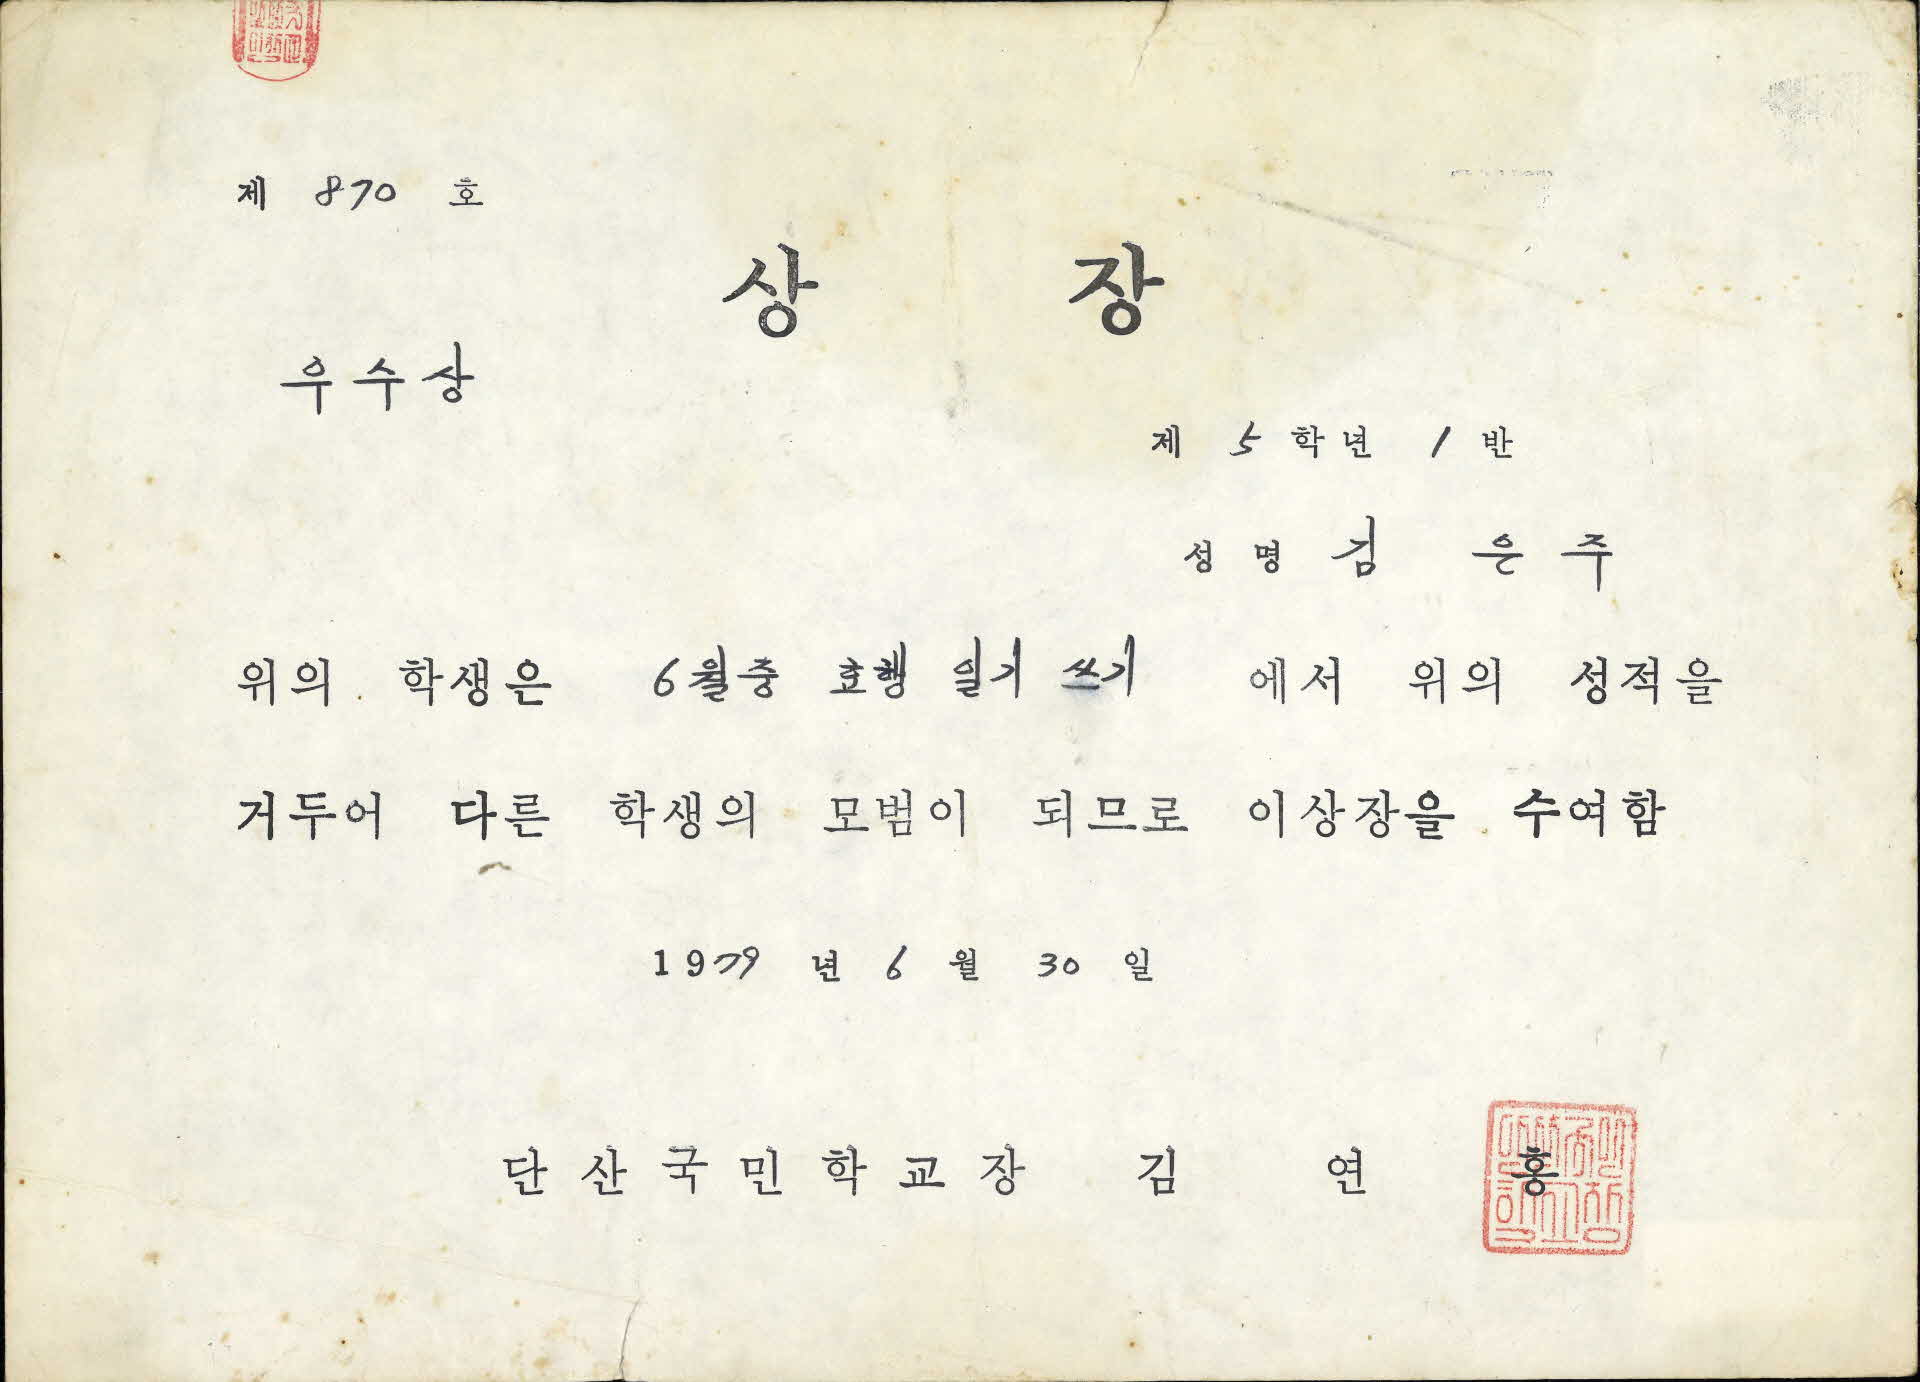 제 870 호
상 장
우수상
제 5 학년 1 반
성명 김 은 주
위의 학생은 6월중 효행 일기 쓰기 에서 위의 성적을
거두어 다른 학생의 모범이 되므로 이상장을 수여함
1979 년 6 월 30 일
단산국민학교장 김 연 홍